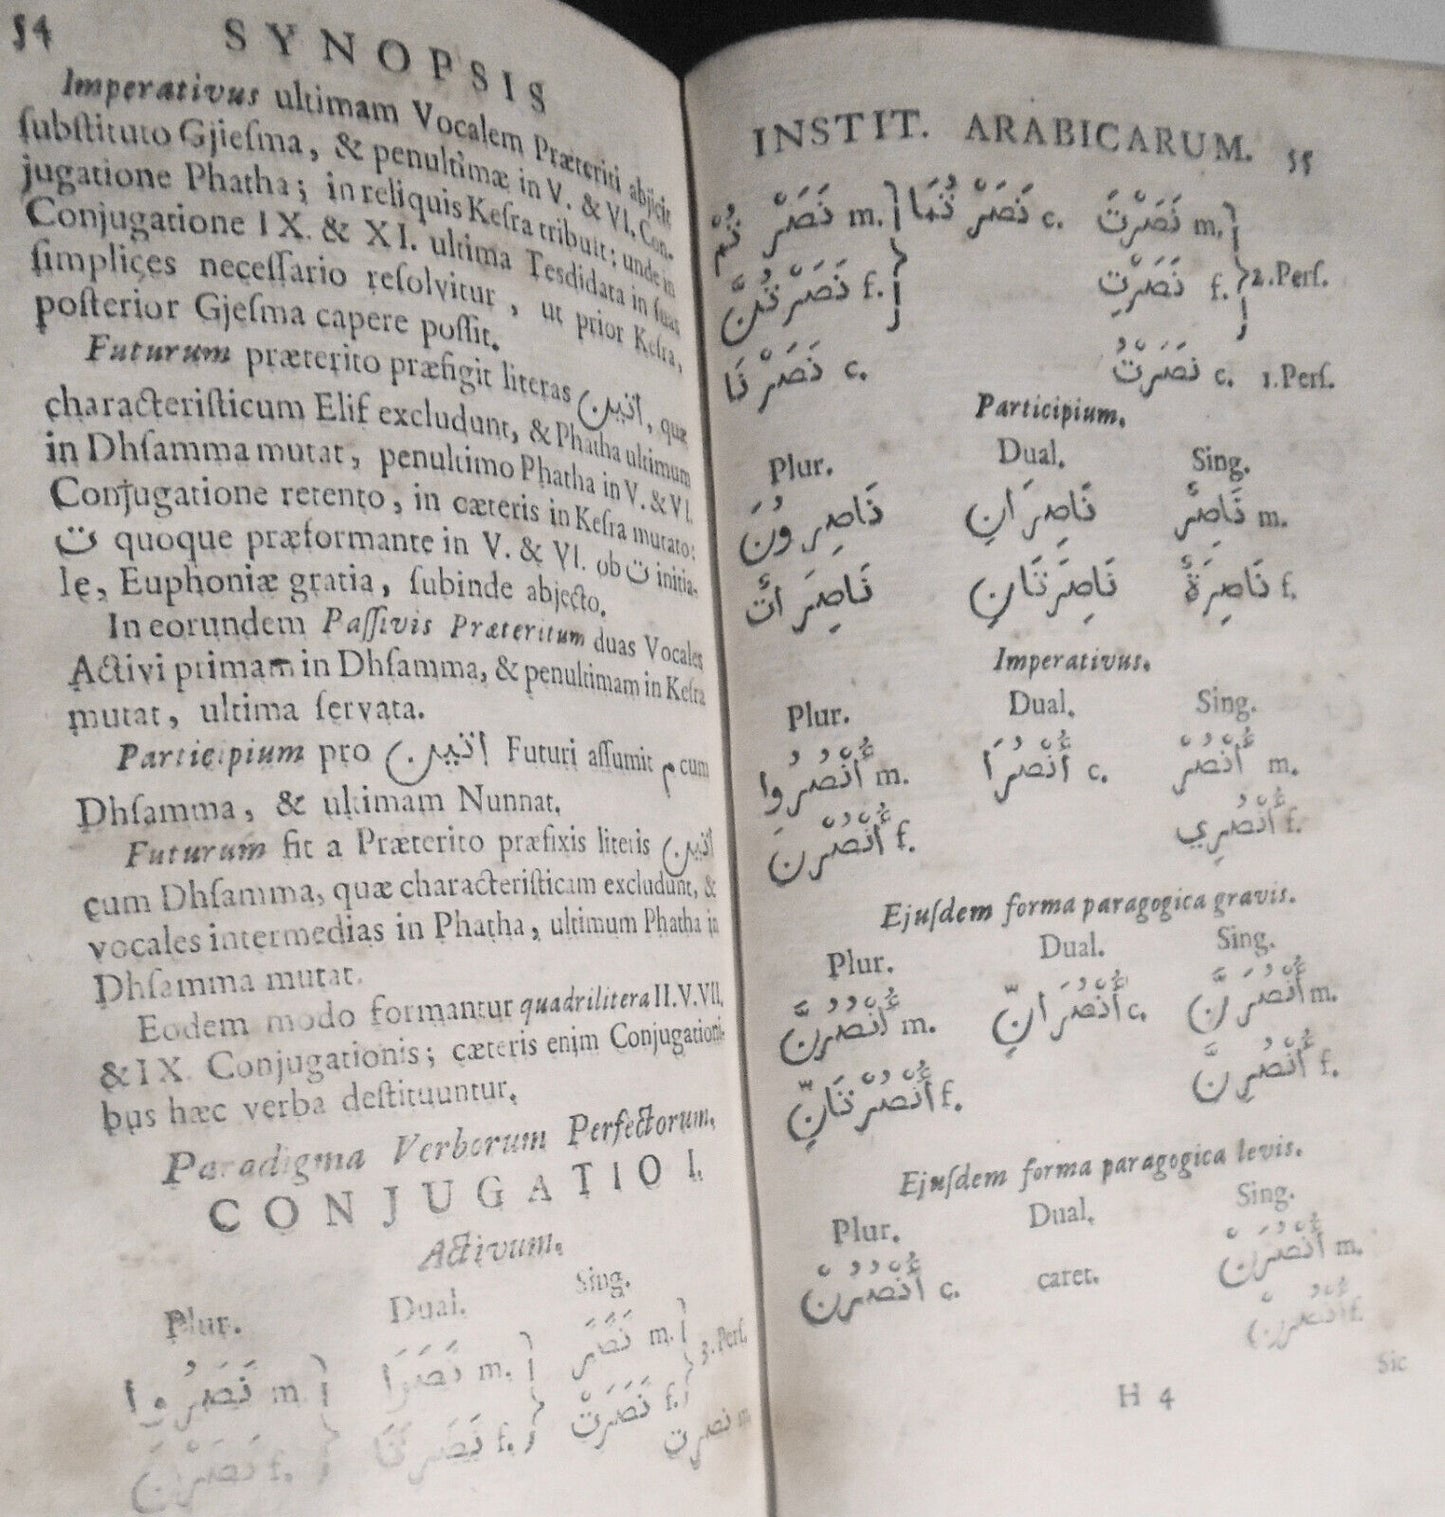 54 SYNOPSIS
Imperativus ultimam Vocalem Præteriti abjicit
ſubſtituto Gjieſma, & penultimæ in V. & VI. Con-
jugatione Phatha; in reliquis Keſra tribuit; unde in
Conjugatione IX. & XI. ultima Tesdidata in ſuas
ſimplices neceſſario reſolvitur, ut prior Keſra,
poſterior Gjeſma capere poſſit.
Futurum præterito præfigit literas اتين, quæ
characteriſticum Elif excludunt, & Phatha ultimum
in Dhſamma mutat, penultimo Phatha in V. & VI.
Conjugatione retento, in cæteris in Keſra mutato:
ت quoque præformante in V. & VI. ob ت initia-
le, Euphoniæ gratia, ſubinde abjecto.
In eorundem Paſſivis Præteritum duas Vocales
Activi primam in Dhſamma, & penultimam in Keſra
mutat, ultima ſervata.
Participium pro اتين Futuri aſſumit م cum
Dhſamma, & ultimam Nunnat.
Futurum fit a Præterito præfixis literis اتين
cum Dhſamma, quæ characteriſticam excludunt, &
vocales intermedias in Phatha, ultimum Phatha in
Dhſamma mutat.
Eodem modo formantur quadrilitera II. V. VII.
& IX. Conjugationis; cæteris enim Conjugationi-
bus hæc verba deſtituuntur.
Paradigma Verborum Perfectorum.
CONJUGATIO I.
Activum.
Plur. Dual. Sing.
نَصَرُوا m. نَصَرَا m. نَصَرَ m. 3. Perſ.
نَصَرْنَ f. نَصَرَتَا f. نَصَرَتْ f.
نصرت m
INSTIT. ARABICARUM. 55
نَصَرْتُمْ m. نَصَرْتُمَا c. نَصَرْتَ m.
نَصَرْتُنَّ f. نَصَرْتِ f. 2. Perſ.
نَصَرْنَا c. نَصَرْتُ c. 1. Perſ.
Participium.
Plur. Dual. Sing.
نَاصِرُونَ نَاصِرَانِ نَاصِرٌ m.
نَاصِرَاتٌ نَاصِرَتَانِ نَاصِرَةٌ f.
Imperativus.
Plur. Dual. Sing.
أُنْصُرُوا m. أُنْصُرَا c. أُنْصُرْ m.
أُنْصُرْنَ f. أُنْصُرِي f.
Ejuſdem forma paragogica gravis.
Plur. Dual. Sing.
أُنْصُرُنَّ m. أُنْصُرَانِّ c. أُنْصُرَنَّ m.
أُنْصُرْنَانِّ f. أُنْصُرِنَّ f.
Ejuſdem forma paragogica levis.
Plur. Dual. Sing.
أُنْصُرُنْ c. caret. أُنْصُرَنْ m.
أُنْصُرِنْ f.
H 4 Sic